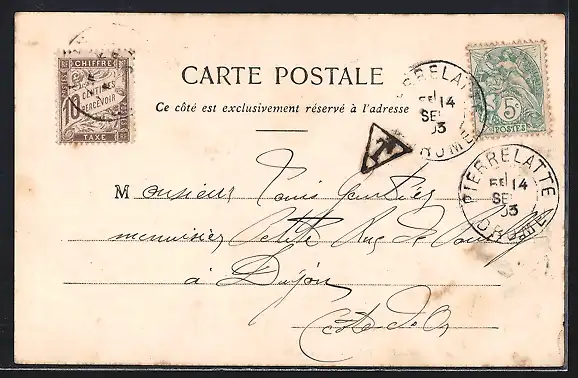 CHIFFRE
10 CENTIMES
A PERCEVOIR
TAXE
CARTE POSTALE
Ce côté est exclusivement réservé à l'adresse
5c
POSTES
PIERRELATTE
14
SEPT
03
DROME
T
PIERRELATTE
14
SEPT
03
DROME
Monsieur Louis Gauthier
menuisier Petite Rue de Pouilly
à Dijon
Côte d'Or